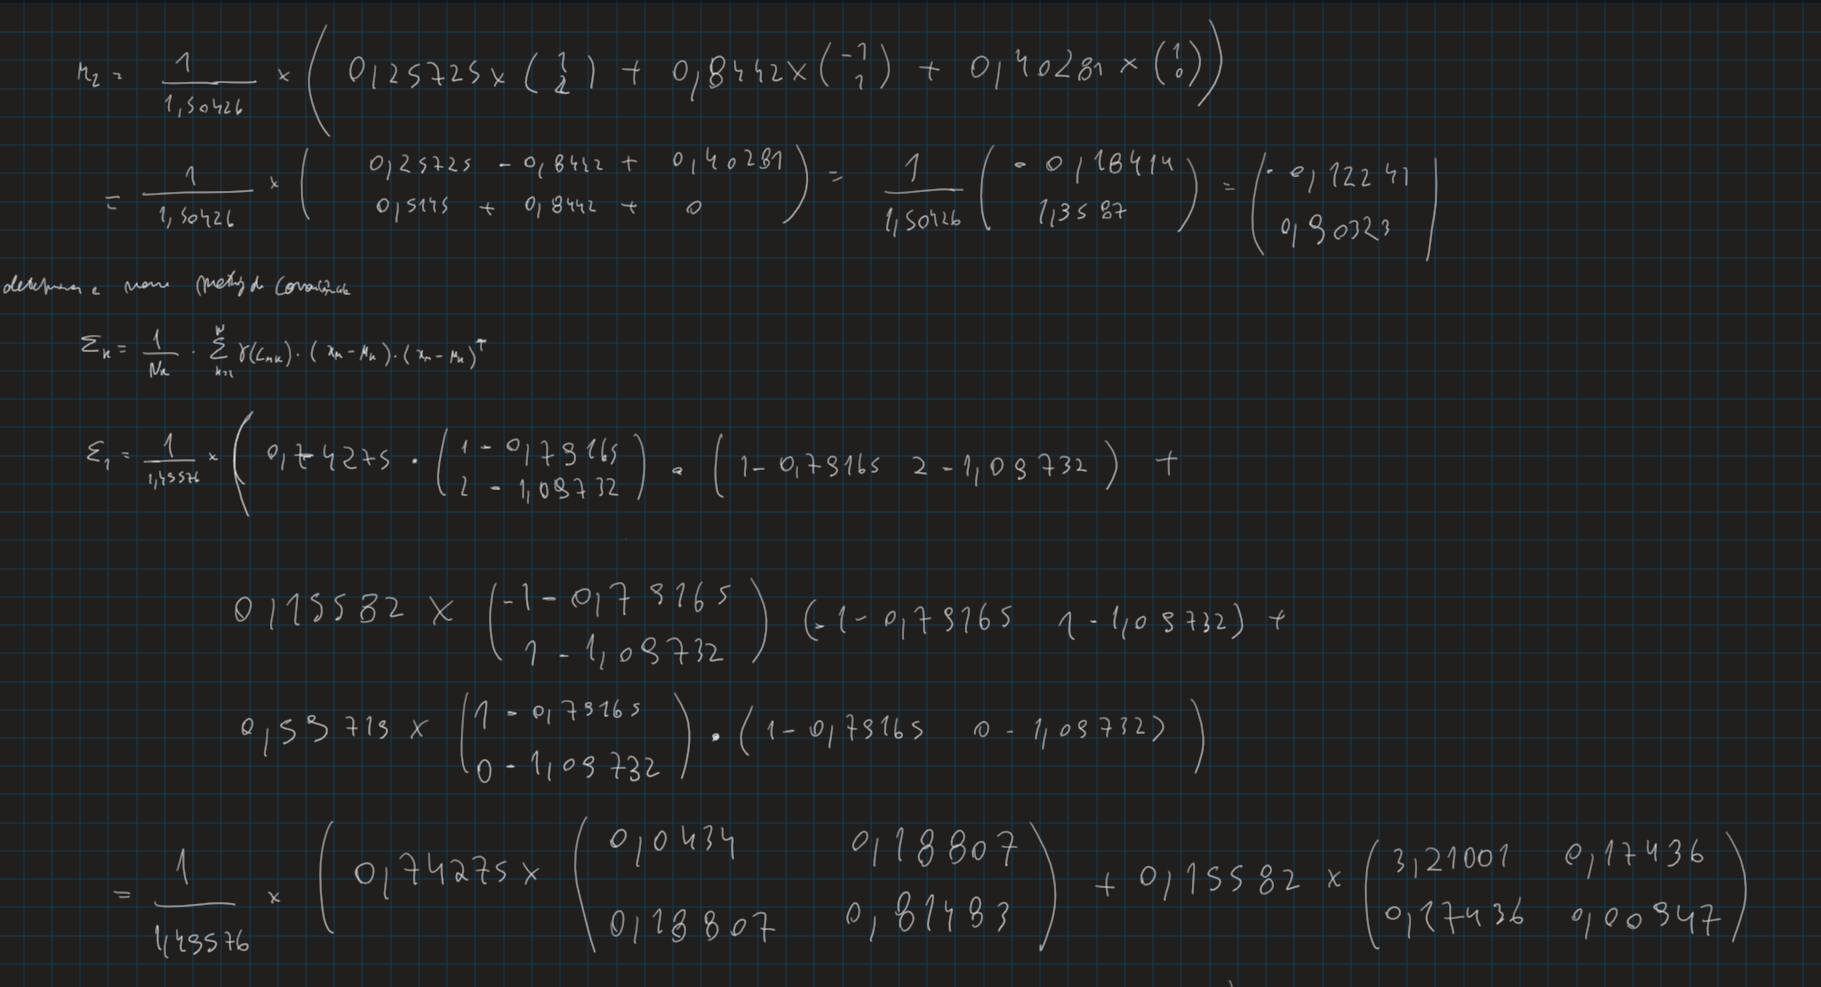 μ₂ = 1/1,50426 × ( 0,25725 × (1 2) + 0,8442 × (-1 1) + 0,40281 × (1 0) )
= 1/1,50426 × ( 0,25725 - 0,8442 + 0,40281 ; 0,5145 + 0,8442 + 0 ) = 1/1,50426 ( -0,18414 ; 1,3587 ) = ( -0,12241 ; 0,90323 )
Σₖ = 1/Nₖ · Σ γ(cₙₖ) · (xₙ - μₖ) · (xₙ - μₖ)ᵀ
Σ₁ = 1/1,49576 × ( 0,74275 · ( 1 - 0,79165 ; 2 - 1,09732 ) · ( 1 - 0,79165 2 - 1,09732 ) +
0,15582 × ( -1 - 0,79165 ; 1 - 1,09732 ) ( -1 - 0,79165 1 - 1,09732 ) +
0,59719 × ( 1 - 0,79165 ; 0 - 1,09732 ) · ( 1 - 0,79165 0 - 1,09732 ) )
= 1/1,49576 × ( 0,74275 × ( 0,0434 0,18807 ; 0,18807 0,81483 ) + 0,15582 × ( 3,21001 0,17436 ; 0,17436 0,00947 )